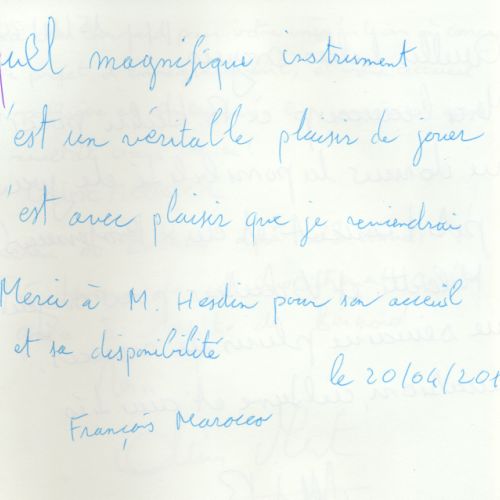 quel magnifique instrument
'est un véritable plaisir de jouer
'est avec plaisir que je reviendrai
Merci à M. Hesdin pour son acceuil
et sa disponibilité
le 20/04/201
François Marocco